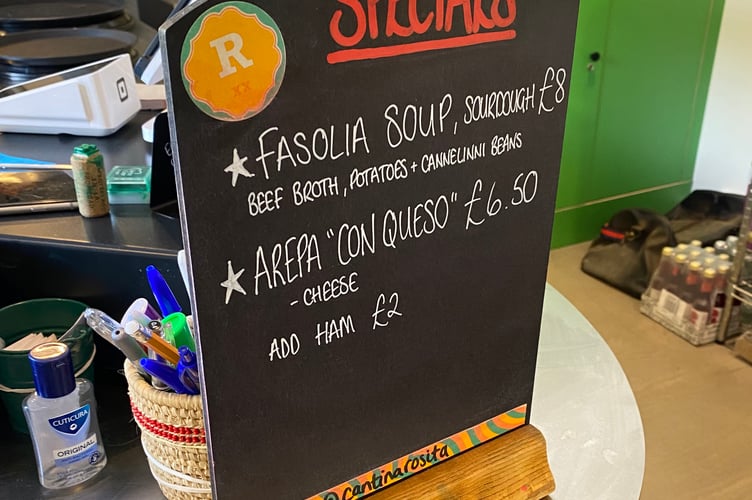 SPECIALS
R
XX
★ FASOLIA SOUP, SOURDOUGH £8
BEEF BROTH, POTATOES + CANNELINNI BEANS
★ AREPA "CON QUESO" £6.50
- CHEESE
ADD HAM £2
@cantinarosita
CUTICURA
ORIGINAL